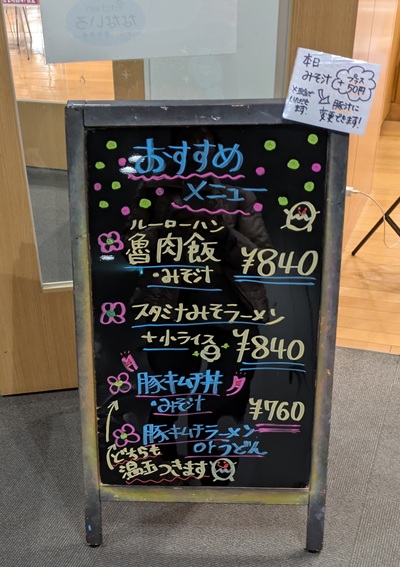 Kitchen
なないろ
本日
みそ汁
プラス
50円
豚汁に
変更できます!
おすすめ
メニュー
ルーローハン
魯肉飯
・みそ汁
¥840
スタミナみそラーメン
+小ライス
¥840
豚キムチ丼
・みそ汁
¥760
豚キムチラーメン
orうどん
どちらも
温玉つきます